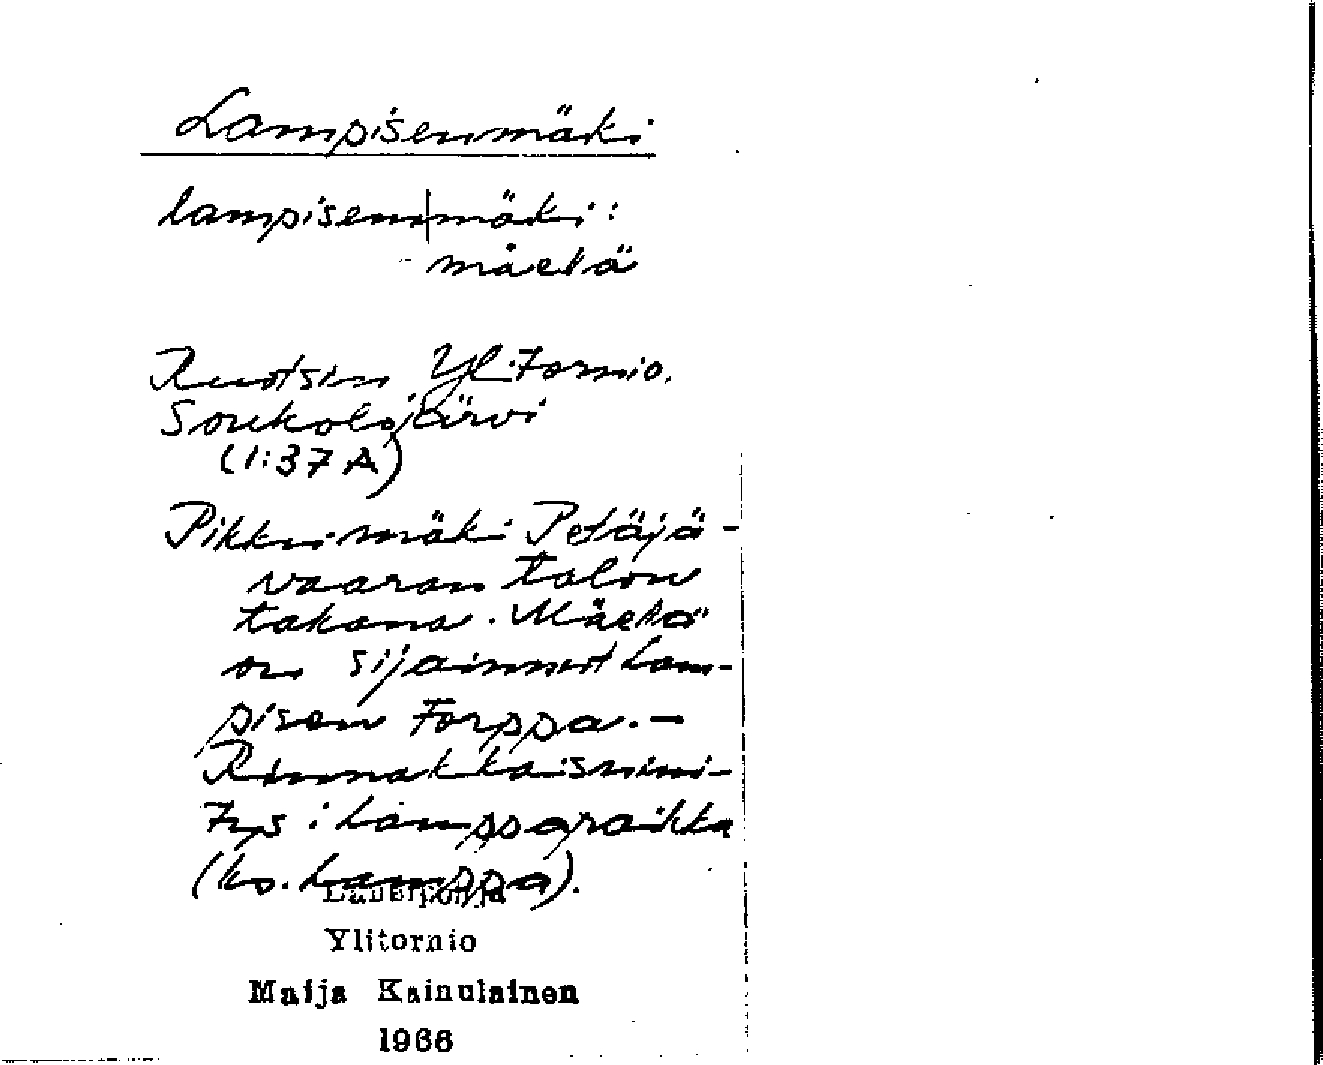 Lampisenmäki
lampisen|mäki:
- mäelä
Ruotsin Ylitornio.
Soukolojärvi
(1:37 A)
Pikku mäki Petäjä-
vaaran talon
takana. Mäellä
on sijainnut Lam-
pisen torppa. -
Rinnakkaisnimi-
tys: Lamppa
(ks. Lamppa).
Länsipohja
Ylitornio
Maija Kainulainen
1966